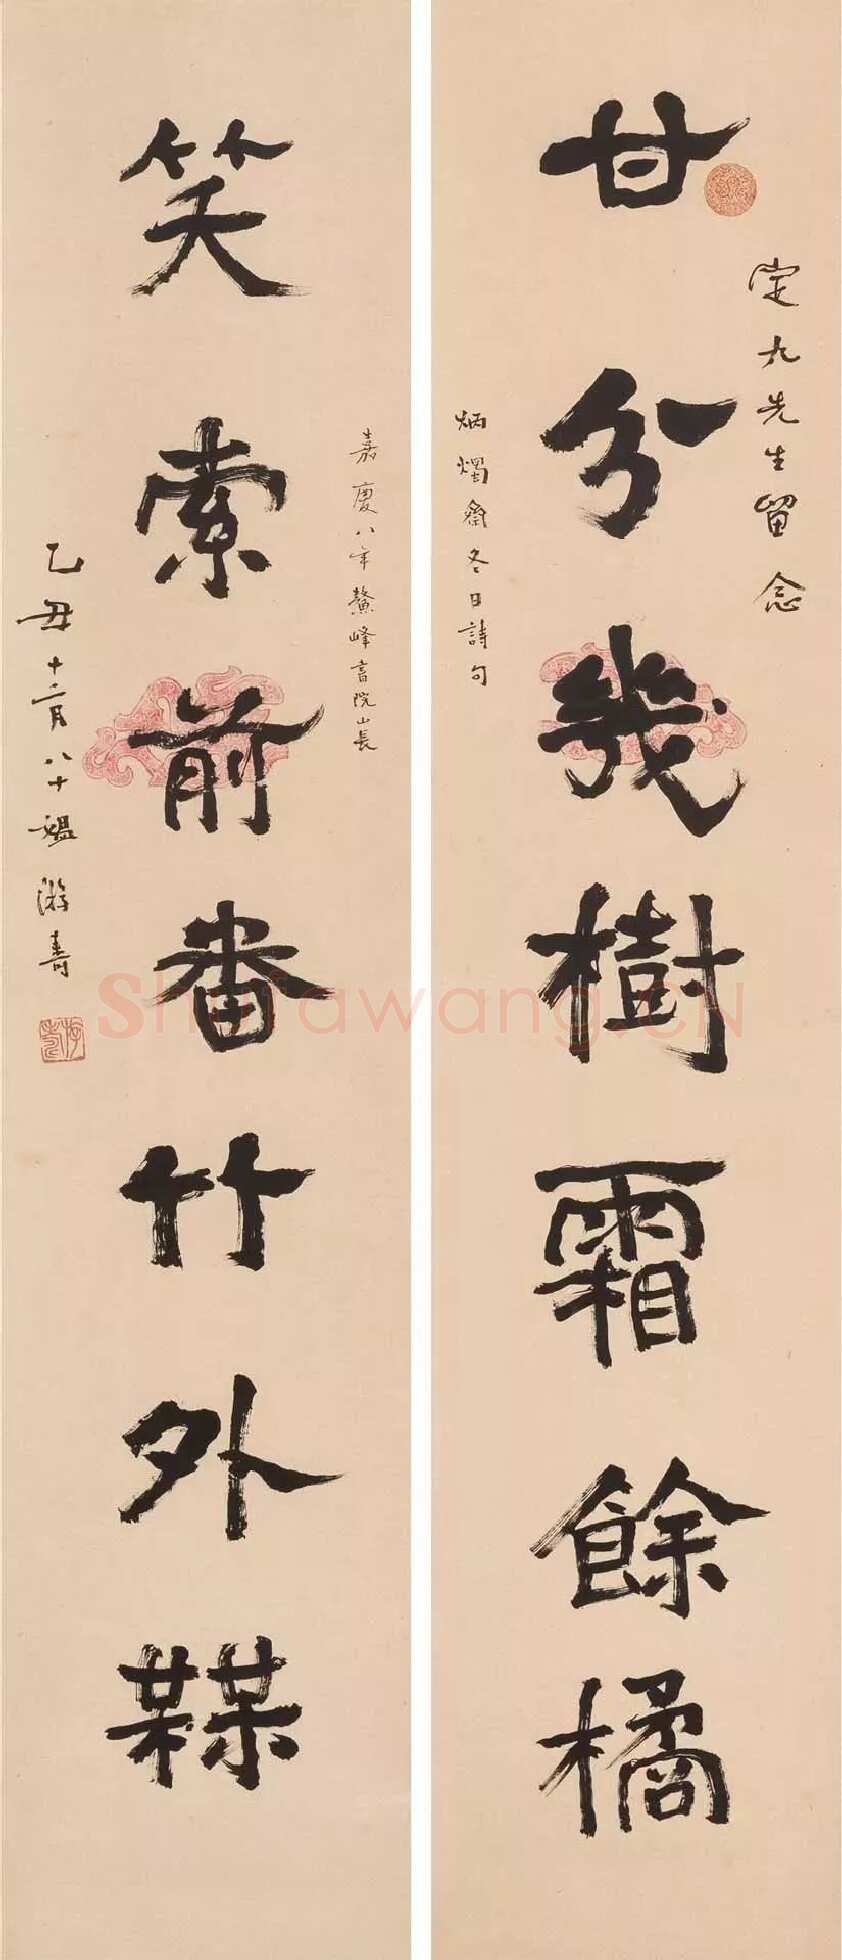 定九先生留念
甘分幾樹霜餘橘
炳燭齋冬日詩句
嘉慶八年鰲峰書院山長
笑索前番竹外槑
乙丑十二月八十媼游壽
游壽
Shufawang.CN